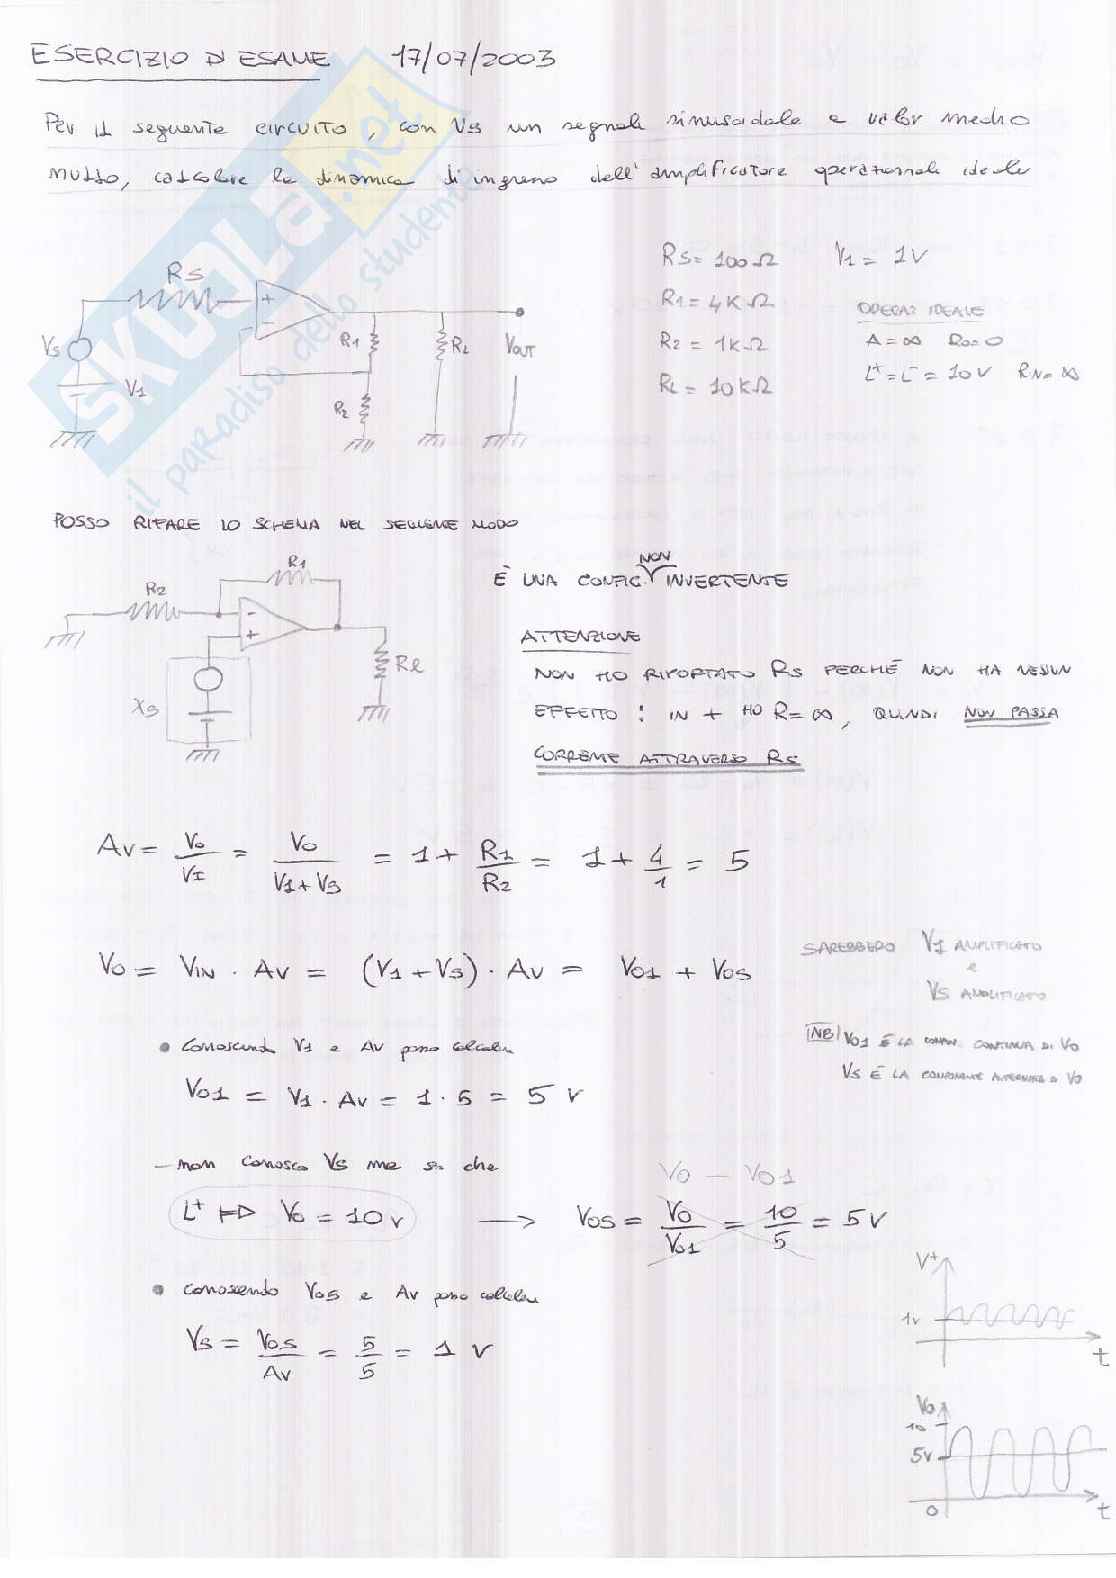 ESERCIZIO DI ESAME 17/07/2003
Per il seguente circuito, con Vs un segnale sinusoidale a valor medio
nullo, calcolare la dinamica di ingresso dell'amplificatore operazionale ideale
SKUOLA.net
il paRadiso dello studente
Rs
+
-
Vs
V1
R1
R2
RL
VOUT
Rs = 100 Ω V1 = 1V
R1 = 4K Ω
R2 = 1K Ω
RL = 10KΩ
OPERAZ IDEALE
A = ∞ Ro = 0
L+ = L- = 10V RIN = ∞
POSSO RIFARE LO SCHEMA NEL SEGUENTE MODO
R1
R2
-
+
Rl
Xs
È UNA CONFIG. NON INVERTENTE
ATTENZIONE
NON HO RIPORTATO Rs PERCHÉ NON HA NESSUN
EFFETTO : IN + HO R = ∞, QUINDI NON PASSA
CORRENTE ATTRAVERSO Rs
Av = Vo/VI = Vo/(V1+Vs) = 1 + R1/R2 = 1 + 4/1 = 5
Vo = VIN · Av = (V1 + Vs) · Av = Vo1 + Vos
SAREBBERO V1 AMPLIFICATO
e
Vs AMPLIFICATO
NB Vo1 È LA COMPON. CONTINUA DI Vo
Vs È LA COMPONENTE ALTERNATA DI Vo
• conoscendo V1 e Av posso calcolare
Vo1 = V1 · Av = 1 · 5 = 5 V
- non conosco Vs ma so che
L+ ⊨> Vo = 10 V → Vos = Vo/Vo1 = 10/5 = 5V
Vo - Vo1
• conoscendo Vos e Av posso calcolare
Vs = Vos/Av = 5/5 = 1 V
V+
1v
t
Vo
10
5v
0
t